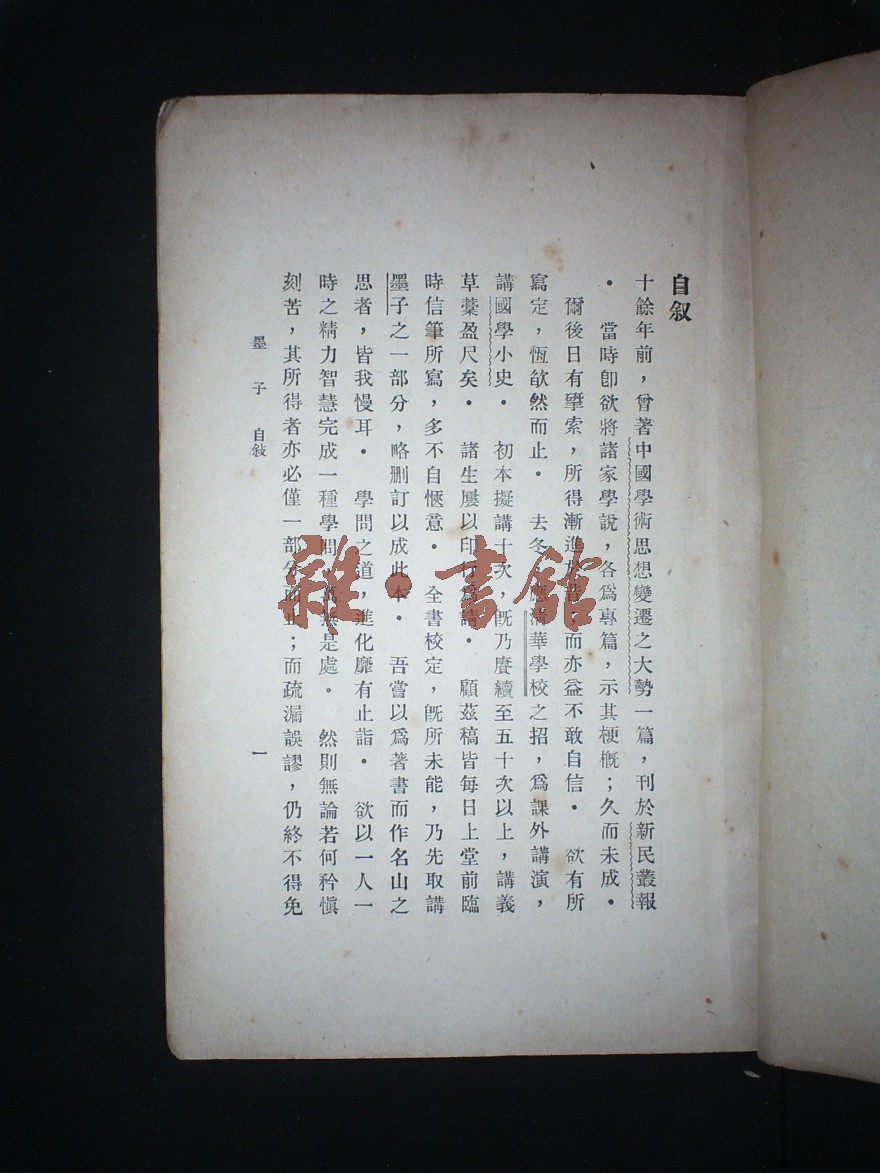 自叙
十餘年前，曾著中國學術思想變遷之大勢一篇，刊於新民叢報
．當時卽欲將諸家學說，各爲專篇，示其梗槪；久而未成．
爾後日有硏索，所得漸進於昔，而亦益不敢自信．欲有所
寫定，恆欿然而止．去冬應清華學校之招，爲課外講演，
講國學小史．初本擬講十次，旣乃賡續至五十次以上，講義
草藁盈尺矣．諸生屢以印行爲請．顧茲稿皆每日上堂前臨
時信筆所寫，多不自愜意．全書校定，旣所未能，乃先取講
墨子之一部分，略刪訂以成此本．吾嘗以爲著書而作名山之
思者，皆我慢耳．學問之道，進化靡有止詣．欲以一人一
時之精力智慧完成一種學問，萬無是處。然則無論若何矜愼
刻苦，其所得者亦必僅一部分而止；而疏漏誤謬，仍終不得免
墨子 自敍 一
雜·書館